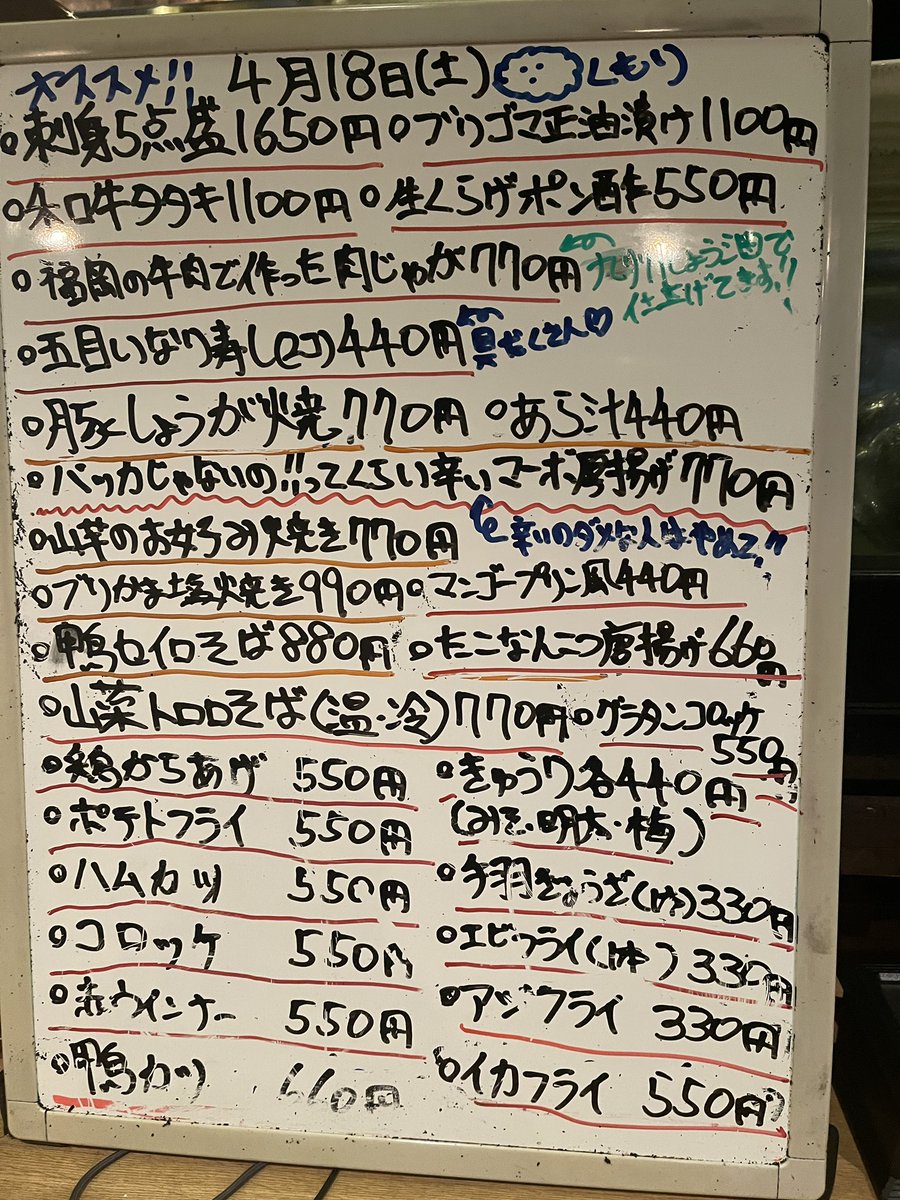 オススメ!! 4月18日(土) くもり
○刺身5点盛1650円○ブリゴマ正油漬け1100円
○和牛タタキ1100円 ○生くらげポン酢550円
○福岡の牛肉で作った肉じゃが770円 ←の九州しょう油で仕上げてます!!
○五目いなり寿し(2コ)440円 ←の具だくさん♡
○豚しょうが焼770円 ○あら汁440円
○バッカじゃないの!!ってくらい辛いマーボ厚揚げ770円
○山芋のお好み焼き770円 辛いのダメな人はやめて!!
○ブリかま塩焼き990円○マンゴープリン風440円
○鴨セイロそば880円 ○たこなんこつ唐揚げ660円
○山菜トロロそば(温・冷)770円○グラタンコロッケ550円
○鶏からあげ 550円 ○きゅうり各440円
○ポテトフライ 550円 (みそ・明太・梅)
○ハムカツ 550円 ○手羽ぎょうざ(1ケ)330円
○コロッケ 550円 ○エビフライ(1本)330円
○赤ウインナー 550円 ○アジフライ 330円
○鴨カツ 660円 ○イカフライ 550円